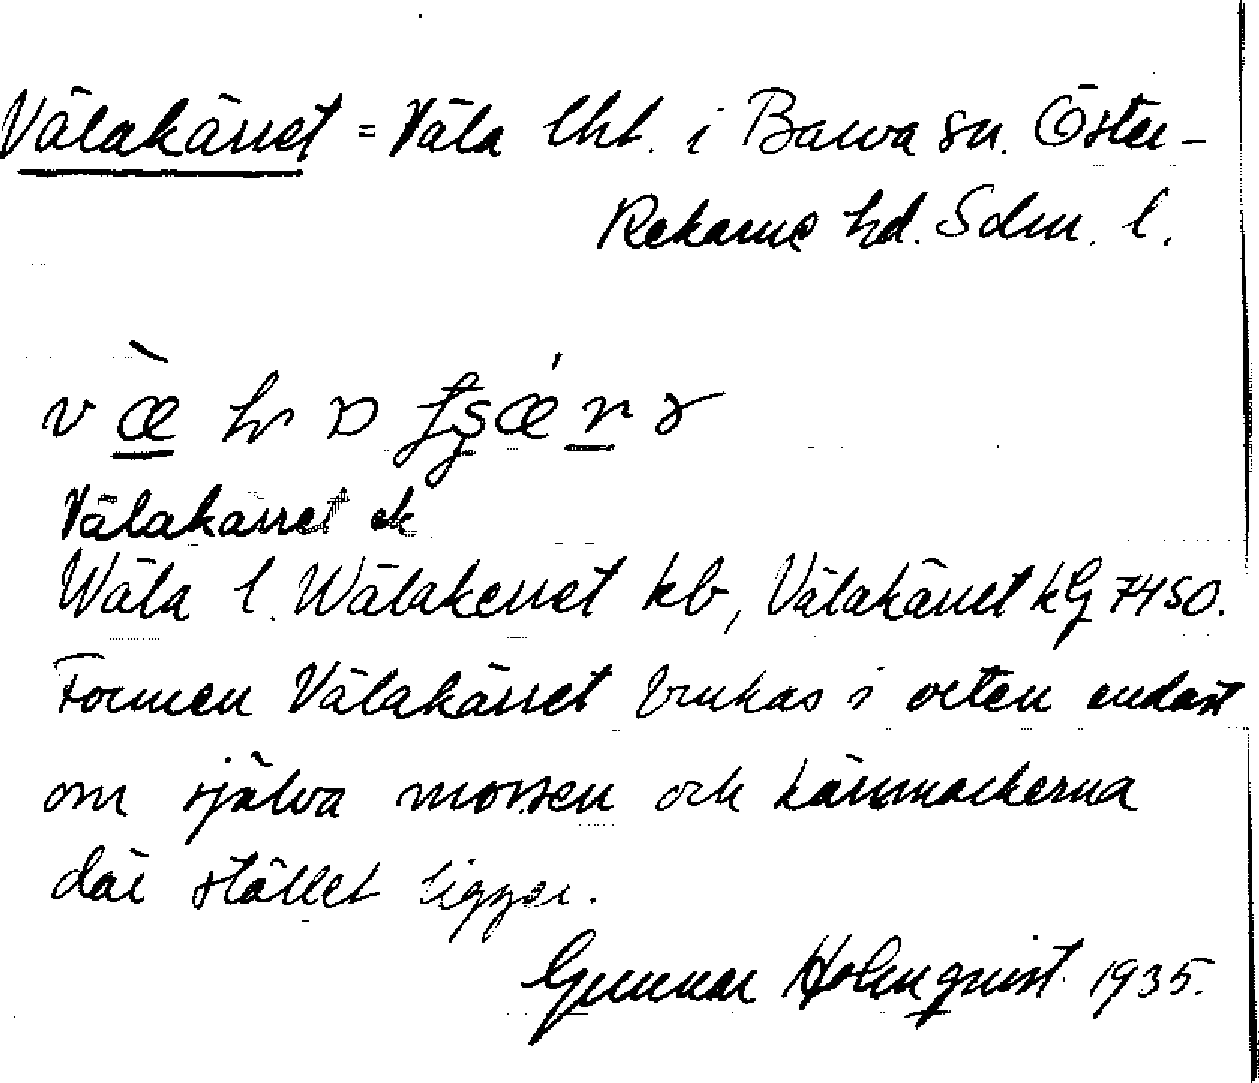 Välakärret = Väla lht. i Barva sn. Öster-
Rekarne hd. Sdm. l.
Välakärret ek
Wäla l. Wälakerret kb, Välakärret kG 7450.
Formen Välakärret brukas i orten endast
om själva mossen och kärrmarkerna
där stället ligger.
Gunnar Holmquist. 1935.